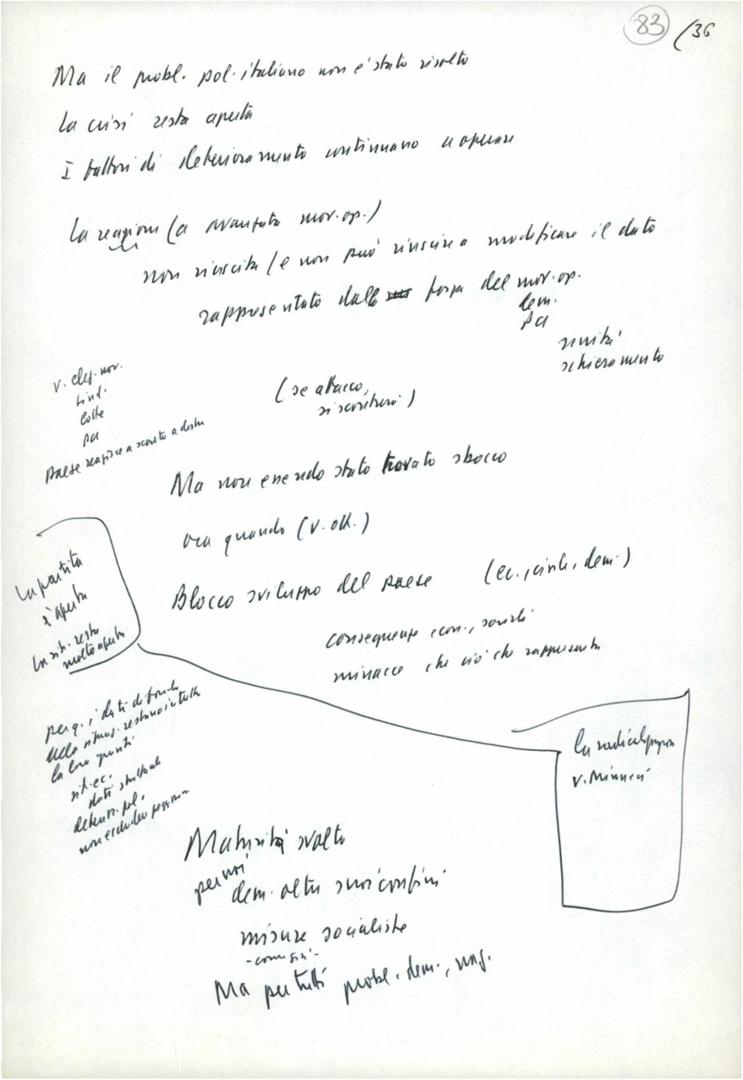 83 /36
Ma il probl. pol. italiano non è stato risolto
La crisi resta aperta
I fattori di deterioramento continuano a operare
La reazione (a avanzata mov. op.)
non riuscita (e non può riuscire a modificare il dato
rappresentato dalla forza del mov. op.
dem.
PCI
unità
schieramento
v. elez. nov.
sind.
lotte
PCI
paese reagisce a scontro a destra
(se attacco,
si scontrerà)
Ma non essendo stato trovato sbocco
ora quando (v. ott.)
Blocco sviluppo del paese (ec., civile, dem.)
conseguenze econ., sociali
minacce che ciò che rappresenta
La partita
è aperta
la sit. resta
molto aperta
perq. i dati di fondo
della situaz. restano in tutta
la loro gravità
sit. ec.
dati strutturali
deterior. pol.
non escluder peggiora
la radicale
v.
Maturità svolta
per noi
dem. oltre suoi confini
misure socialiste
Ma per tutti probl. dem.,